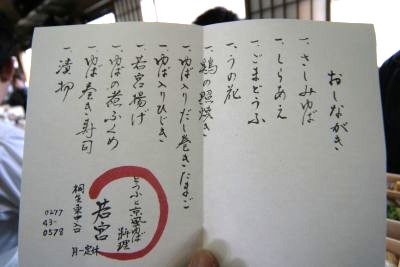 おしながき
一、さしみゆば
一、しらあえ
一、ごまどうふ
一、うの花
一、鶏の照焼き
一、ゆば入りだし巻きたまご
一、ゆば入りひじき
一、若宮揚げ
一、ゆばの煮ふくめ
一、ゆば巻き寿司
一、漬物
とうふと京風ゆば
料理
若宮
月一定休
桐生東中入口
0277
43-
0578